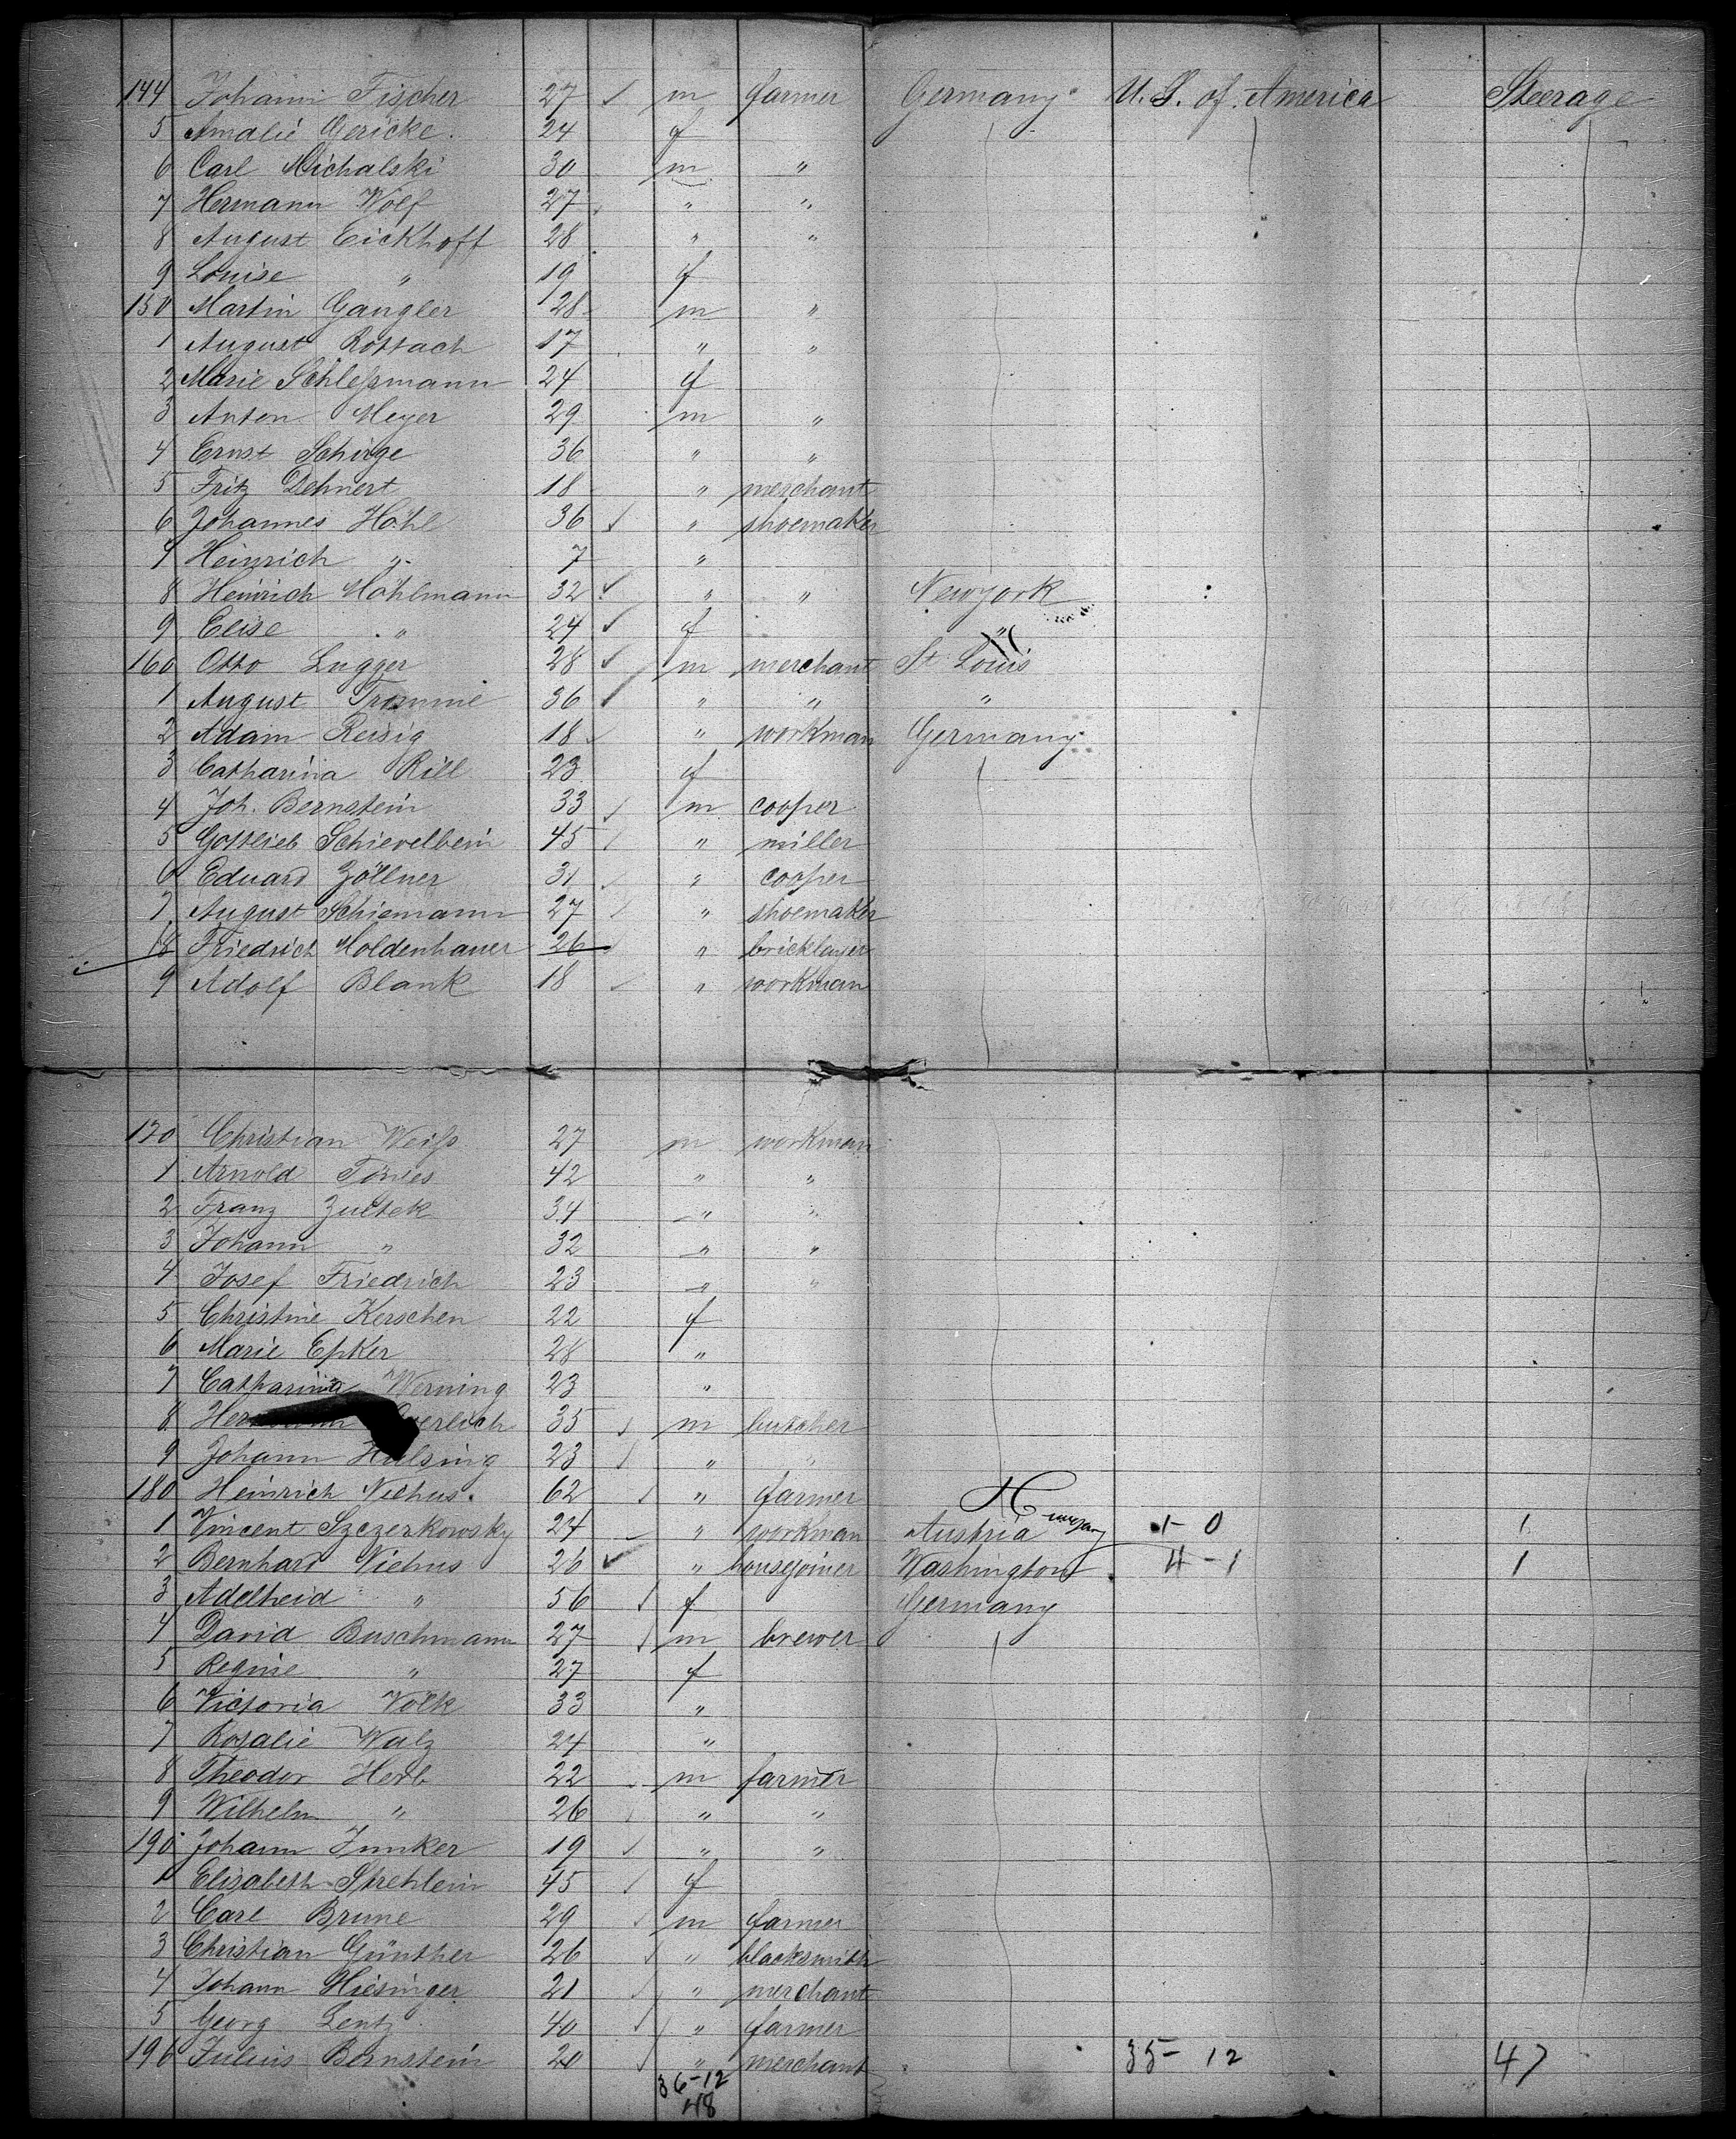 144 Johann Fischer 27 m farmer Germany U. S. of America Steerage
5 Amalie Gericke 24 f
6 Carl Michalski 30 m "
7 Hermann Wolf 27 " "
8 August Eickhoff 28 " "
9 Louise " 19 f
150 Martin Gangler 28 m "
1 August Rottach 17 " "
2 Marie Schleßmann 24 f
3 Anton Meyer 29 m "
4 Ernst Schirge 36 " "
5 Fritz Dehnert 18 " merchant
6 Johannes Höhl 36 " shoemaker
7 Heinrich " 7 "
8 Heinrich Möhlmann 32 " " Newyork
9 Elise " 24 f "
160 Otto Lugger 28 m merchant St. Louis
1 August Tromme 36 " " "
2 Adam Reisig 18 " workman Germany
3 Catharina Rill 23 f
4 Joh. Bernstein 33 m cooper
5 Gottlieb Schievelbein 45 " miller
6 Eduard Zöllner 31 " cooper
7 August Schiemann 27 " shoemaker
8 Friedrich Moldenhauer 26 " bricklayer
9 Adolf Blank 18 " workman
170 Christian Weiß 27 m workman
1 Arnold Tönies 42 " "
2 Franz Zultek 34 " "
3 Johann " 32 " "
4 Josef Friedrich 23 " "
5 Christine Kerschen 22 f
6 Marie Epker 28 "
7 Catharina Werning 23 "
8 35 m butcher
9 Johann Hülsing 23 " "
180 Heinrich Niehus 62 " farmer
1 Vincent Szczerkowsky 24 " workman Austria 1-0 1
2 Bernhard Niehus 26 " housejoiner Washington 4-1 1
3 Adelheid " 56 f Germany
4 David Buschmann 27 m brewer
5 Regine " 27 f
6 Victoria Völk 33 "
7 Rosalie Walz 24 "
8 Theodor Herb 22 m farmer
9 Wilhelm " 26 " "
190 Johann Junker 19 " "
1 Elisabeth Strehlein 45 f
2 Carl Brune 29 m farmer
3 Christian Günther 26 " blacksmith
4 Johann Hiesinger 21 " merchant
5 Georg Lentz 40 " farmer
196 Julius Bernstein 20 " merchant 35-12 47
36-12
48